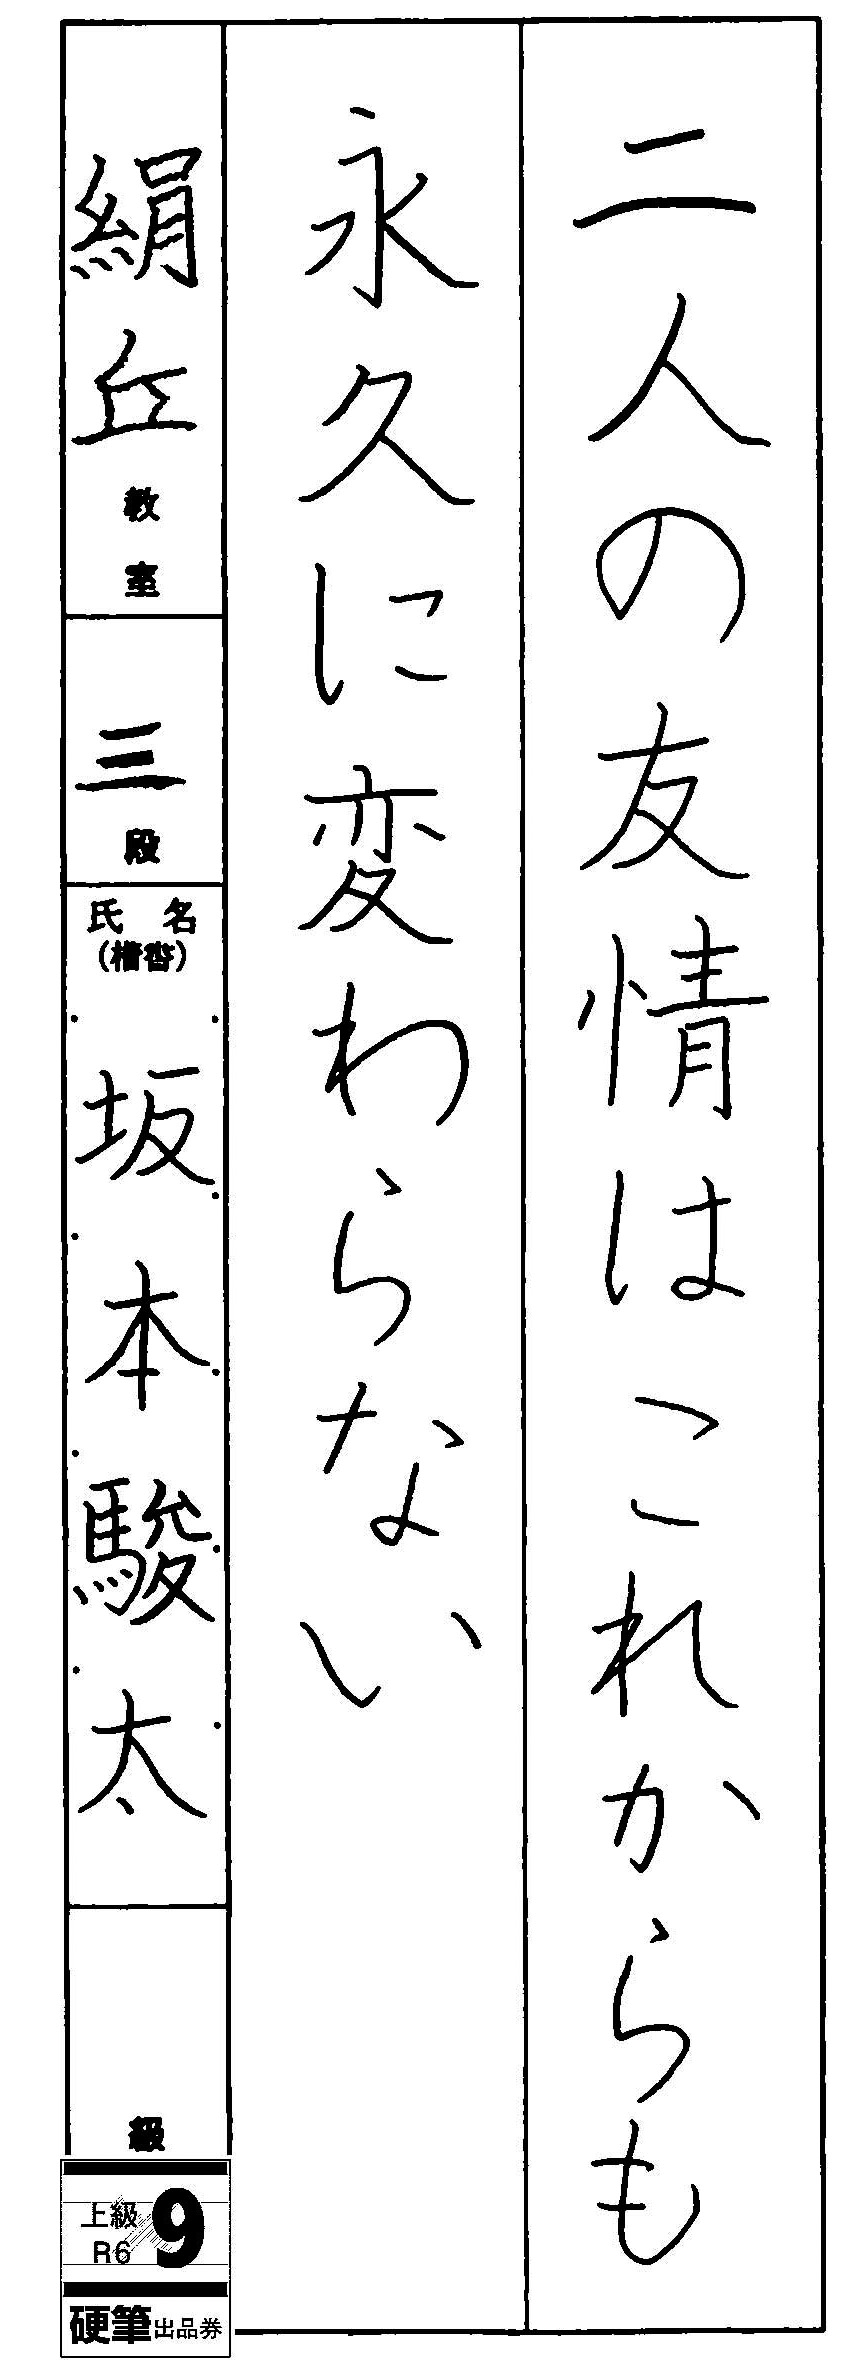 二人の友情はこれからも
永久に変わらない
絹丘教室
三段
氏名
(楷書)
坂本駿太
級
上級
R6
9
硬筆出品券